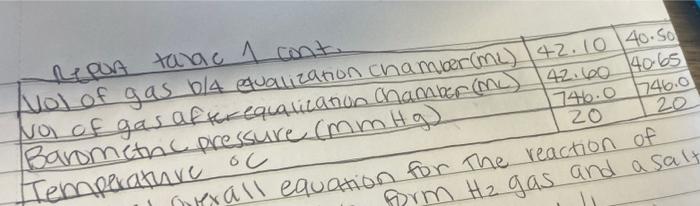 Report table 1 cont.
Vol of gas b/4 equalization chamber (mL) 42.10 40.50
Vol of gas after equalization chamber (mL) 42.60 40.65
Barometric pressure (mmHg) 746.0 746.0
Temperature °C 20 20
overall equation for the reaction of
form H2 gas and a salt